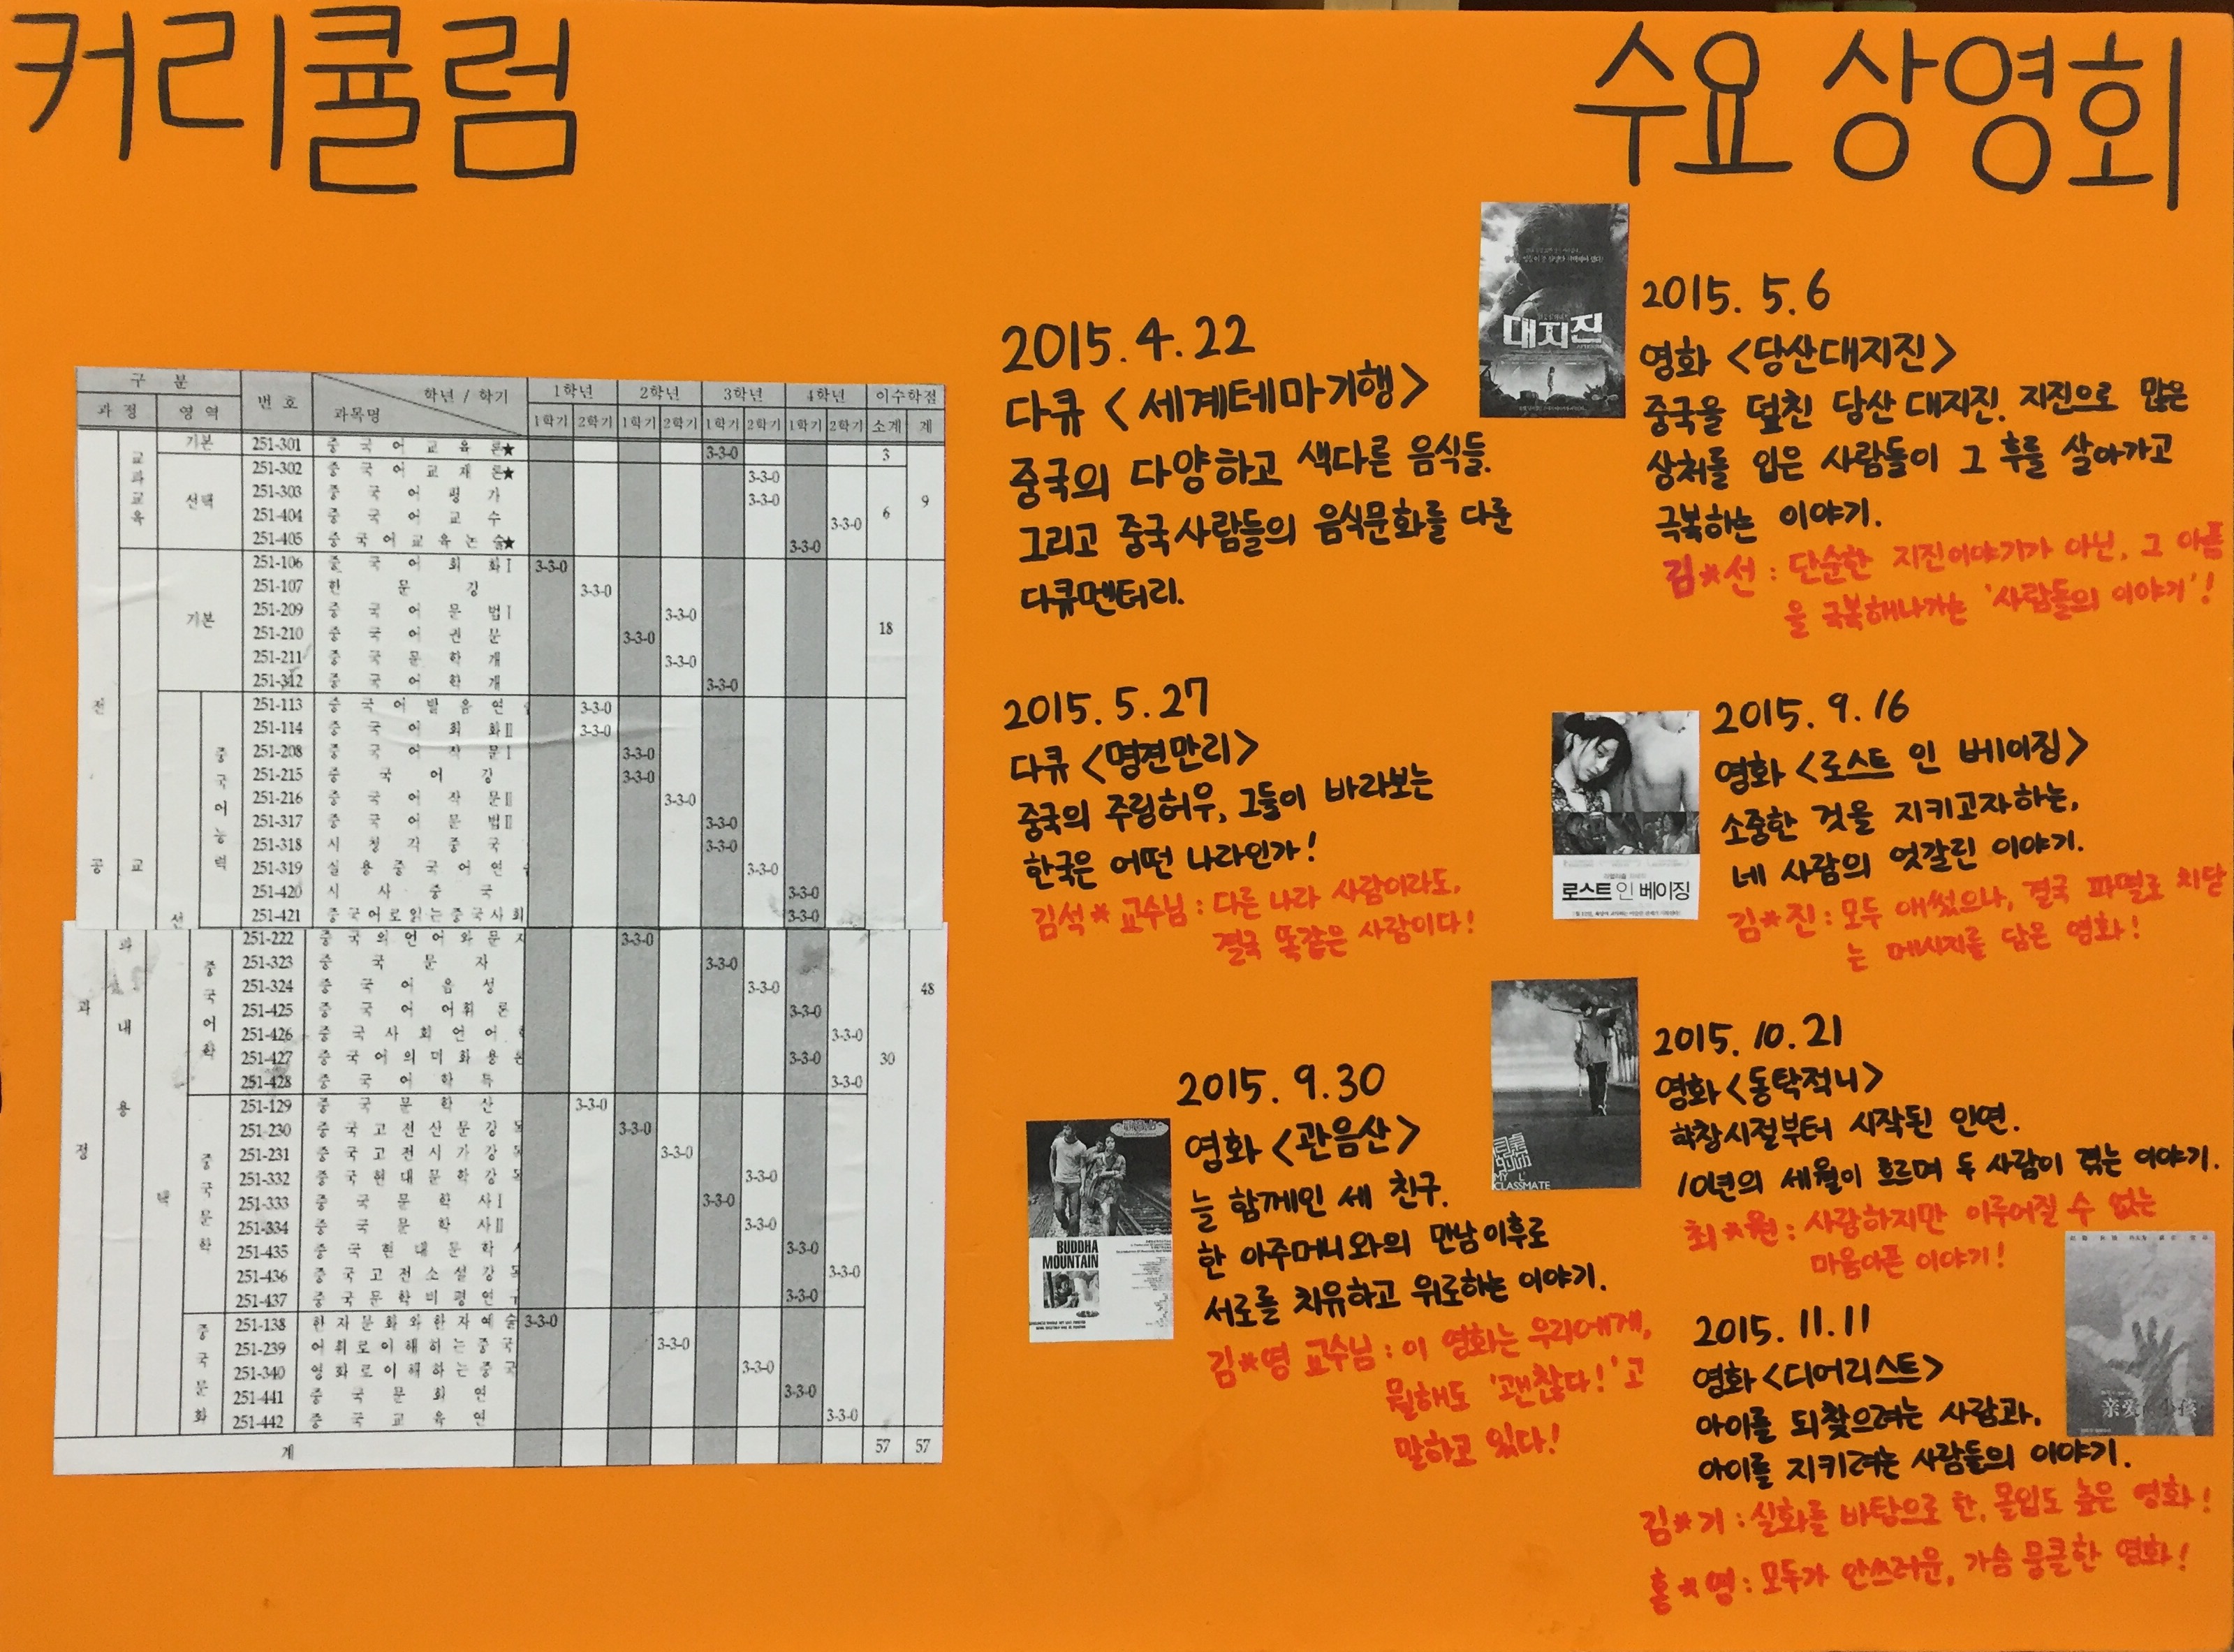 커리큘럼
구 분 번 호 학년 / 학기 1학년 2학년 3학년 4학년 이수학점
과 정 영 역 과목명 1학기 2학기 1학기 2학기 1학기 2학기 1학기 2학기 소계 계
전 공 과 정
교 과 교 육
기본 251-301 중 국 어 교 육 론★ 3-3-0 3
선택 251-302 중 국 어 교 재 론★ 3-3-0
251-303 중 국 어 평 가 3-3-0 9
251-404 중 국 어 교 수 3-3-0 6
251-405 중 국 어 교 육 논 술★ 3-3-0
교 과 내 용
기본 251-106 중 국 어 회 화Ⅰ 3-3-0 18
251-107 한 문 강 3-3-0
251-209 중 국 어 문 법Ⅰ 3-3-0
251-210 중 국 어 강 문 3-3-0
251-211 중 국 문 학 개 3-3-0
251-312 중 국 어 학 개 3-3-0
선 택
중 국 어 능 력
251-113 중 국 어 발 음 연 3-3-0
251-114 중 국 어 회 화Ⅱ 3-3-0
251-208 중 국 어 작 문Ⅰ 3-3-0
251-215 중 국 어 강 3-3-0
251-216 중 국 어 작 문Ⅱ 3-3-0
251-317 중 국 어 문 법Ⅱ 3-3-0
251-318 시 청 각 중 국 3-3-0
251-319 실 용 중 국 어 연 3-3-0
251-420 시 사 중 국 3-3-0
251-421 중 국 어 로 읽 는 중 국 사 회 3-3-0
중 국 어 학
251-222 중 국 의 언 어 와 문 3-3-0
251-323 중 국 문 자 3-3-0
251-324 중 국 어 음 성 3-3-0 48
251-425 중 국 어 어 휘 론 3-3-0
251-426 중 국 사 회 언 어 3-3-0
251-427 중 국 어 의 미 화 용 3-3-0 30
251-428 중 국 어 학 특 3-3-0
중 국 문 학
251-129 중 국 문 학 산 3-3-0
251-230 중 국 고 전 산 문 강 3-3-0
251-231 중 국 고 전 시 가 강 3-3-0
251-332 중 국 현 대 문 학 강 3-3-0
251-333 중 국 문 학 사Ⅰ 3-3-0
251-334 중 국 문 학 사Ⅱ 3-3-0
251-435 중 국 현 대 문 학 3-3-0
251-436 중 국 고 전 소 설 강 3-3-0
251-437 중 국 문 학 비 평 연 3-3-0
중 국 문 화
251-138 한 자 문 화 와 한 자 예 술 3-3-0
251-239 어 휘 로 이 해 하 는 중 국 3-3-0
251-340 영 화 로 이 해 하 는 중 국 3-3-0
251-441 중 국 문 화 연 3-3-0
251-442 중 국 교 육 연 3-3-0
계 57 57
수요 상영회
2015. 4. 22
다큐 <세계테마기행>
중국의 다양하고 색다른 음식들.
그리고 중국사람들의 음식문화를 다룬
다큐멘터리.
대지진
2015. 5. 6
영화 <당산대지진>
중국을 덮친 당산 대지진. 지진으로 많은
상처를 입은 사람들이 그 후를 살아가고
극복하는 이야기.
김*선 : 단순한 지진이야기가 아닌, 그 아픔
을 극복해나가는 '사람들의 이야기'!
2015. 5. 27
다큐 <명견만리>
중국의 주링허우, 그들이 바라보는
한국은 어떤 나라인가!
김석* 교수님 : 다른 나라 사람이라도,
결국 똑같은 사람이다!
로스트 인 베이징
2015. 9. 16
영화 <로스트 인 베이징>
소중한 것을 지키고자하는,
네 사람의 엇갈린 이야기.
김*진 : 모두 애썼으나, 결국 파멸로 치닫
는 메시지를 담은 영화!
BUDDHA
MOUNTAIN
2015. 9. 30
영화 <관음산>
늘 함께인 세 친구.
한 아주머니와의 만남이후로
서로를 치유하고 위로하는 이야기.
김*영 교수님 : 이 영화는 우리에게,
뭘해도 '괜찮다!'고
말하고 있다!
MY
CLASSMATE
2015. 10. 21
영화 <동탁적니>
학창시절부터 시작된 인연.
10년의 세월이 흐르며 두 사람이 겪는 이야기.
최*원 : 사랑하지만 이루어질 수 없는
마음아픈 이야기!
2015. 11. 11
영화 <디어리스트>
아이를 되찾으려는 사람과,
아이를 지키려는 사람들의 이야기.
김*기 : 실화를 바탕으로 한, 몰입도 높은 영화!
홍*명 : 모두가 안쓰러운, 가슴 뭉클한 영화!
亲爱 小孩